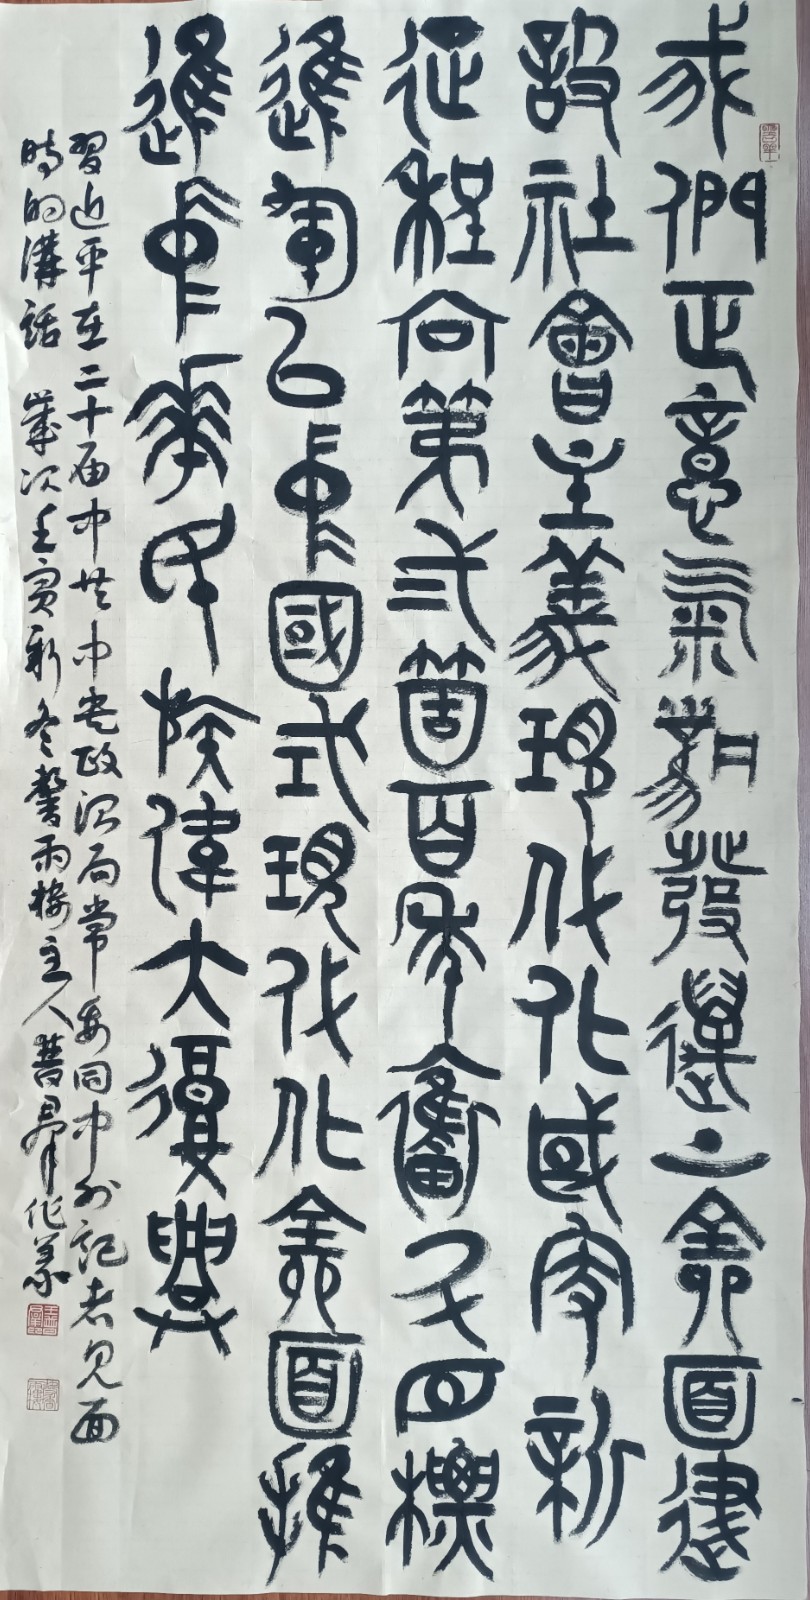 我們正意氣發邁上全面建
設社會主義現代化國家新
征程向第弍箇百年奮斗目標
進軍以中國式現代化全面推
進中華民族偉大復興
習近平在二十届中共中央政治局常委同中外記者見面
時的講話 歲次壬寅初冬馨雨樓主人作篆